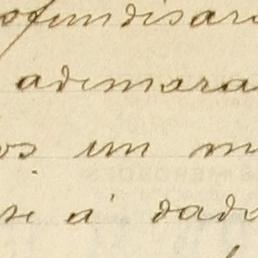 ofundisar
ademara
os un m
se á dado